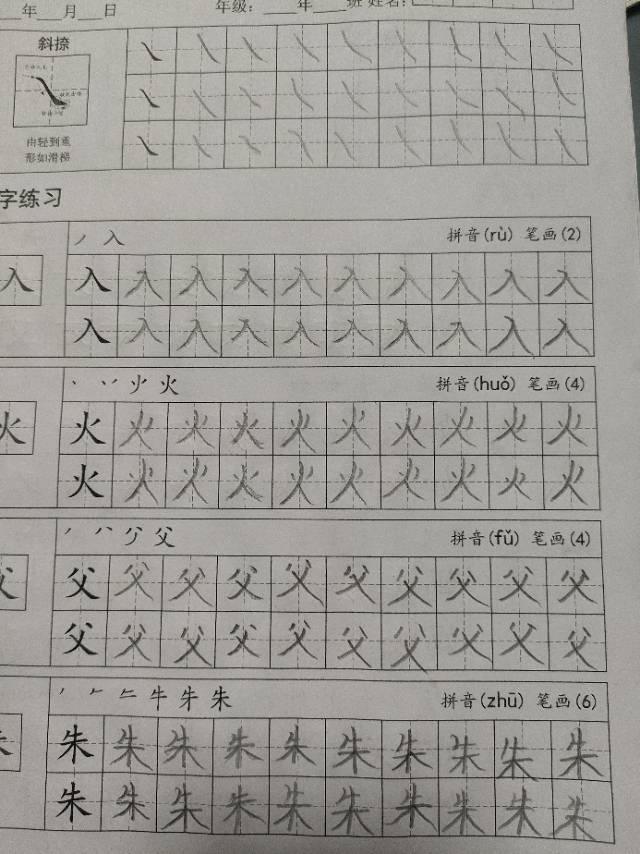 年 月 日 年级: 年 班 姓名:
斜捺
由轻到重
形如滑梯
字练习
丿 入 拼音(rù) 笔画(2)
入 入 入 入 入 入 入 入 入 入 入
入 入 入 入 入 入 入 入 入 入
火 拼音(huǒ) 笔画(4)
火 火 火 火 火 火 火 火 火 火 火
火 火 火 火 火 火 火 火 火 火
父 拼音(fǔ) 笔画(4)
父 父 父 父 父 父 父 父 父 父 父
父 父 父 父 父 父 父 父 父 父
牛 朱 拼音(zhū) 笔画(6)
朱 朱 朱 朱 朱 朱 朱 朱 朱 朱 朱
朱 朱 朱 朱 朱 朱 朱 朱 朱 朱